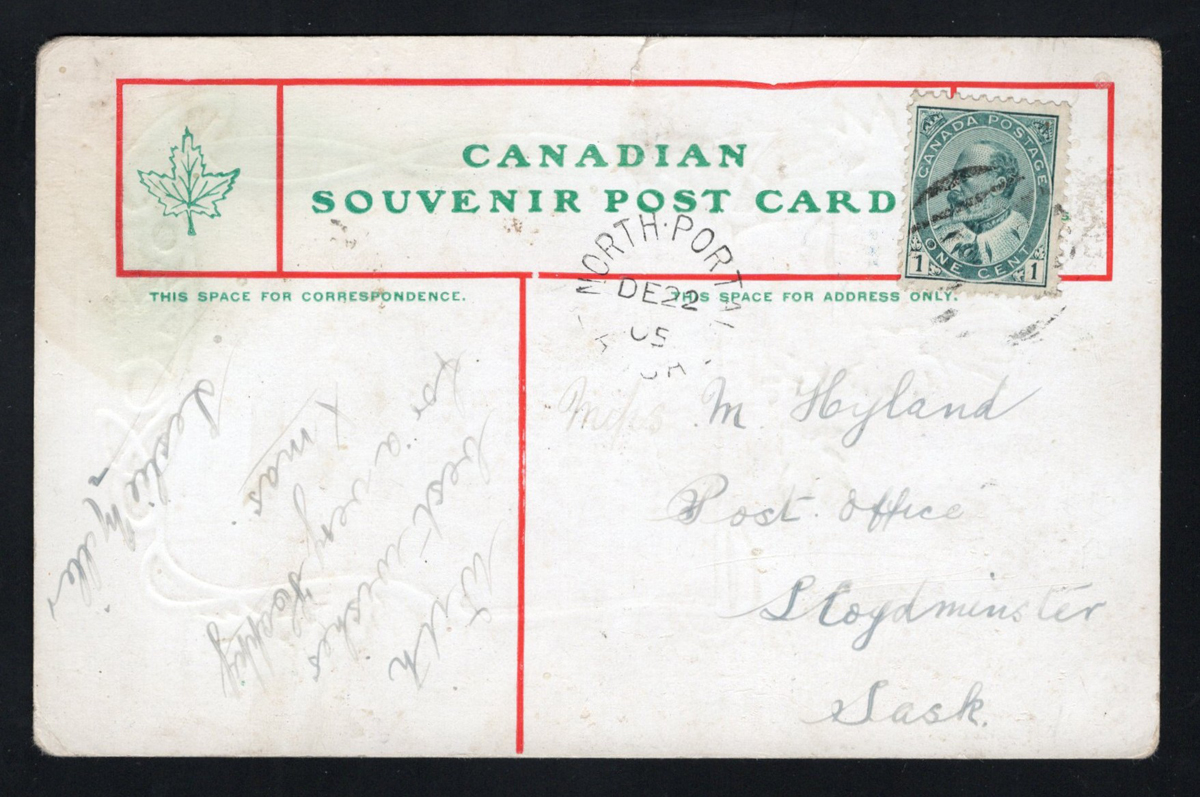 CANADIAN
SOUVENIR POST CARD
CANADA POSTAGE
ONE CENT
1 1
NORTH·PORTAL
DE 22
05
THIS SPACE FOR CORRESPONDENCE.
THIS SPACE FOR ADDRESS ONLY.
With
best wishes
for a very Happy
Xmas
Leslie
Miss M Hyland
Post. Office
Lloydminster
Sask.